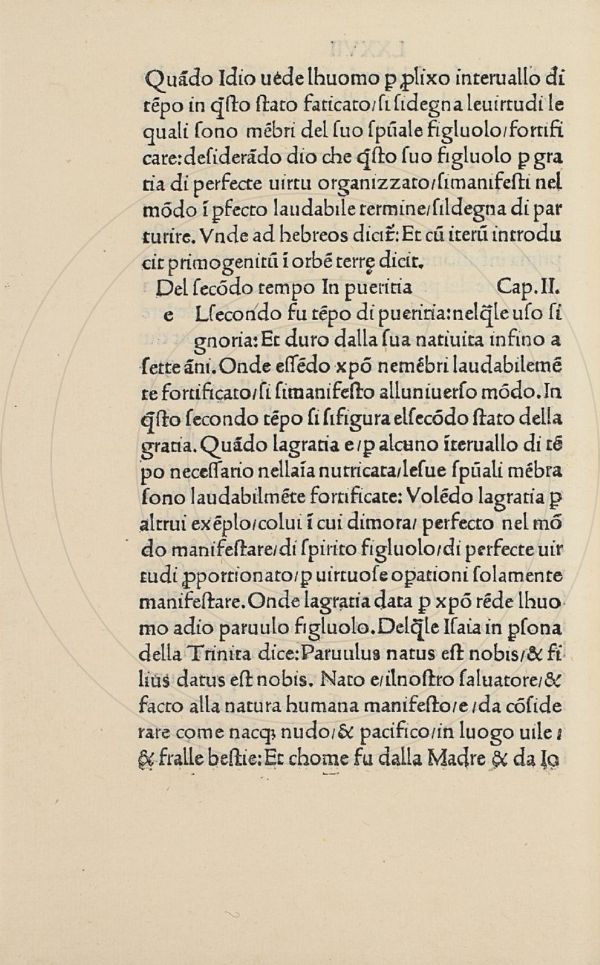 Quādo Idio uéde lhuomo ꝑ ꝓlixo interuallo di
tēpo in q̄ſto ſtato faticato/ſi ſidegna leuirtudi le
quali ſono mēbri del ſuo ſpūale figluolo/fortifi
care: deſiderādo dio che q̄ſto ſuo figluolo ꝑ gra
tia di perfecte uirtu organizzato/ſimanifeſti nel
mōdo ī ꝑfecto laudabile termine/ſildegna di par
turire. Vnde ad hebreos dicit̄: Et cū iterū introdu
cit primogenitū ī orbē terrę dicit.
Del ſecōdo tempo In pueritia Cap. II.
e Lſecondo fu tēpo di pueritia: nelq̄le uſo ſi
gnoria: Et duro dalla ſua natiuita infino a
ſette āni. Onde eſſēdo xpō nemēbri laudabilemē
te fortificato/ſi ſimanifeſto alluniuerſo mōdo. In
q̄ſto ſecondo tēpo ſi ſifigura elſecōdo ſtato della
gratia. Quādo lagratia e/ꝑ alcuno īteruallo di tē
po neceſſario nellaīa nutricata/leſue ſpūali mēbra
ſono laudabilmēte fortificate: Volēdo lagratia ꝑ
altrui exēplo/colui ī cui dimora/ perfecto nel mō
do manifeſtare/di ſpirito figluolo/di perfecte uir
tudi ꝓportionato/ꝑ uirtuoſe oꝑationi ſolamente
manifeſtare. Onde lagratia data ꝑ xpō rēde lhuo
mo adio paruulo figluolo. Delq̄le Iſaia in ꝑſona
della Trinita dice: Paruulus natus eſt nobis/& fi
lius datus eſt nobis. Nato e/ilnoſtro ſaluatore/&
facto alla natura humana manifeſto/e/da cōſide
rare come nacqꝫ nudo/& pacifico/in luogo uile/
& fralle beſtie: Et chome fu dalla Madre & da Io